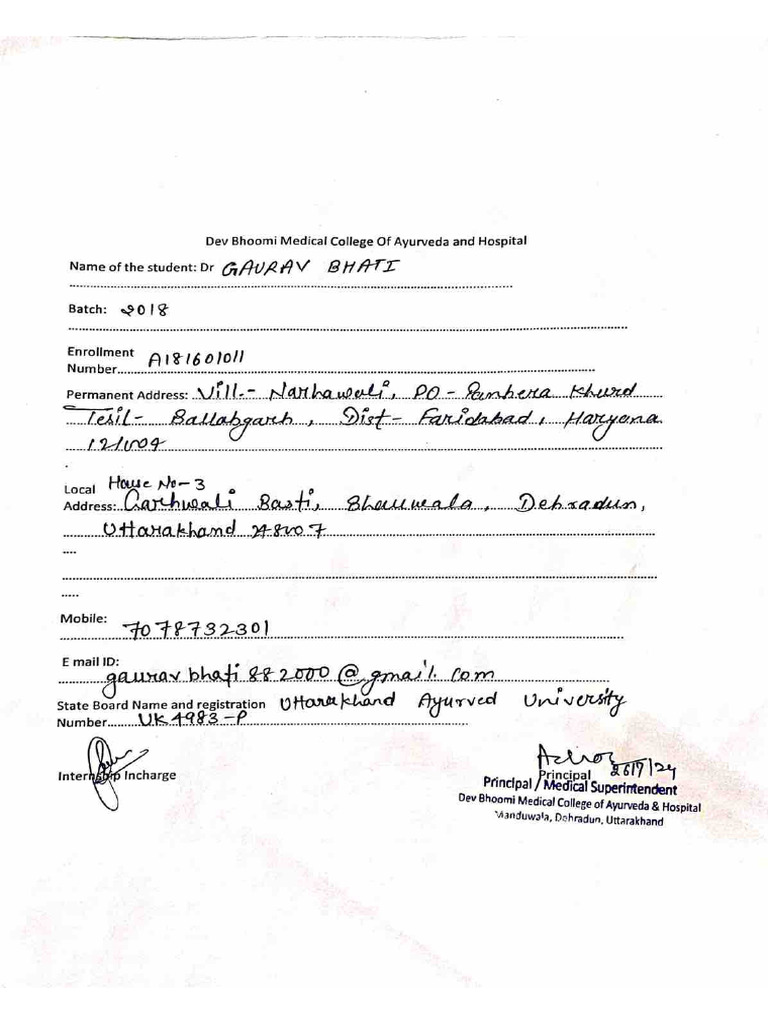 Dev Bhoomi Medical College Of Ayurveda and Hospital
Name of the student: Dr GAURAV BHATI
Batch: 2018
Enrollment
Number A181601011
Permanent Address: Vill.- Narhawali, PO - Panhera Khurd
Tesil- Ballabgarh, Dist- Faridabad, Haryana
121004
Local House No-3
Address: Garhwali Basti, Bhauwala, Dehradun,
Uttarakhand 248007
Mobile: 7078732301
E mail ID:
gaurav bhati 882000@gmail.com
State Board Name and registration Uttarakhand Ayurved University
Number UK4983-P
Internship Incharge
Principal 26/7/24
Principal / Medical Superintendent
Dev Bhoomi Medical College of Ayurveda & Hospital
Manduwala, Dehradun, Uttarakhand